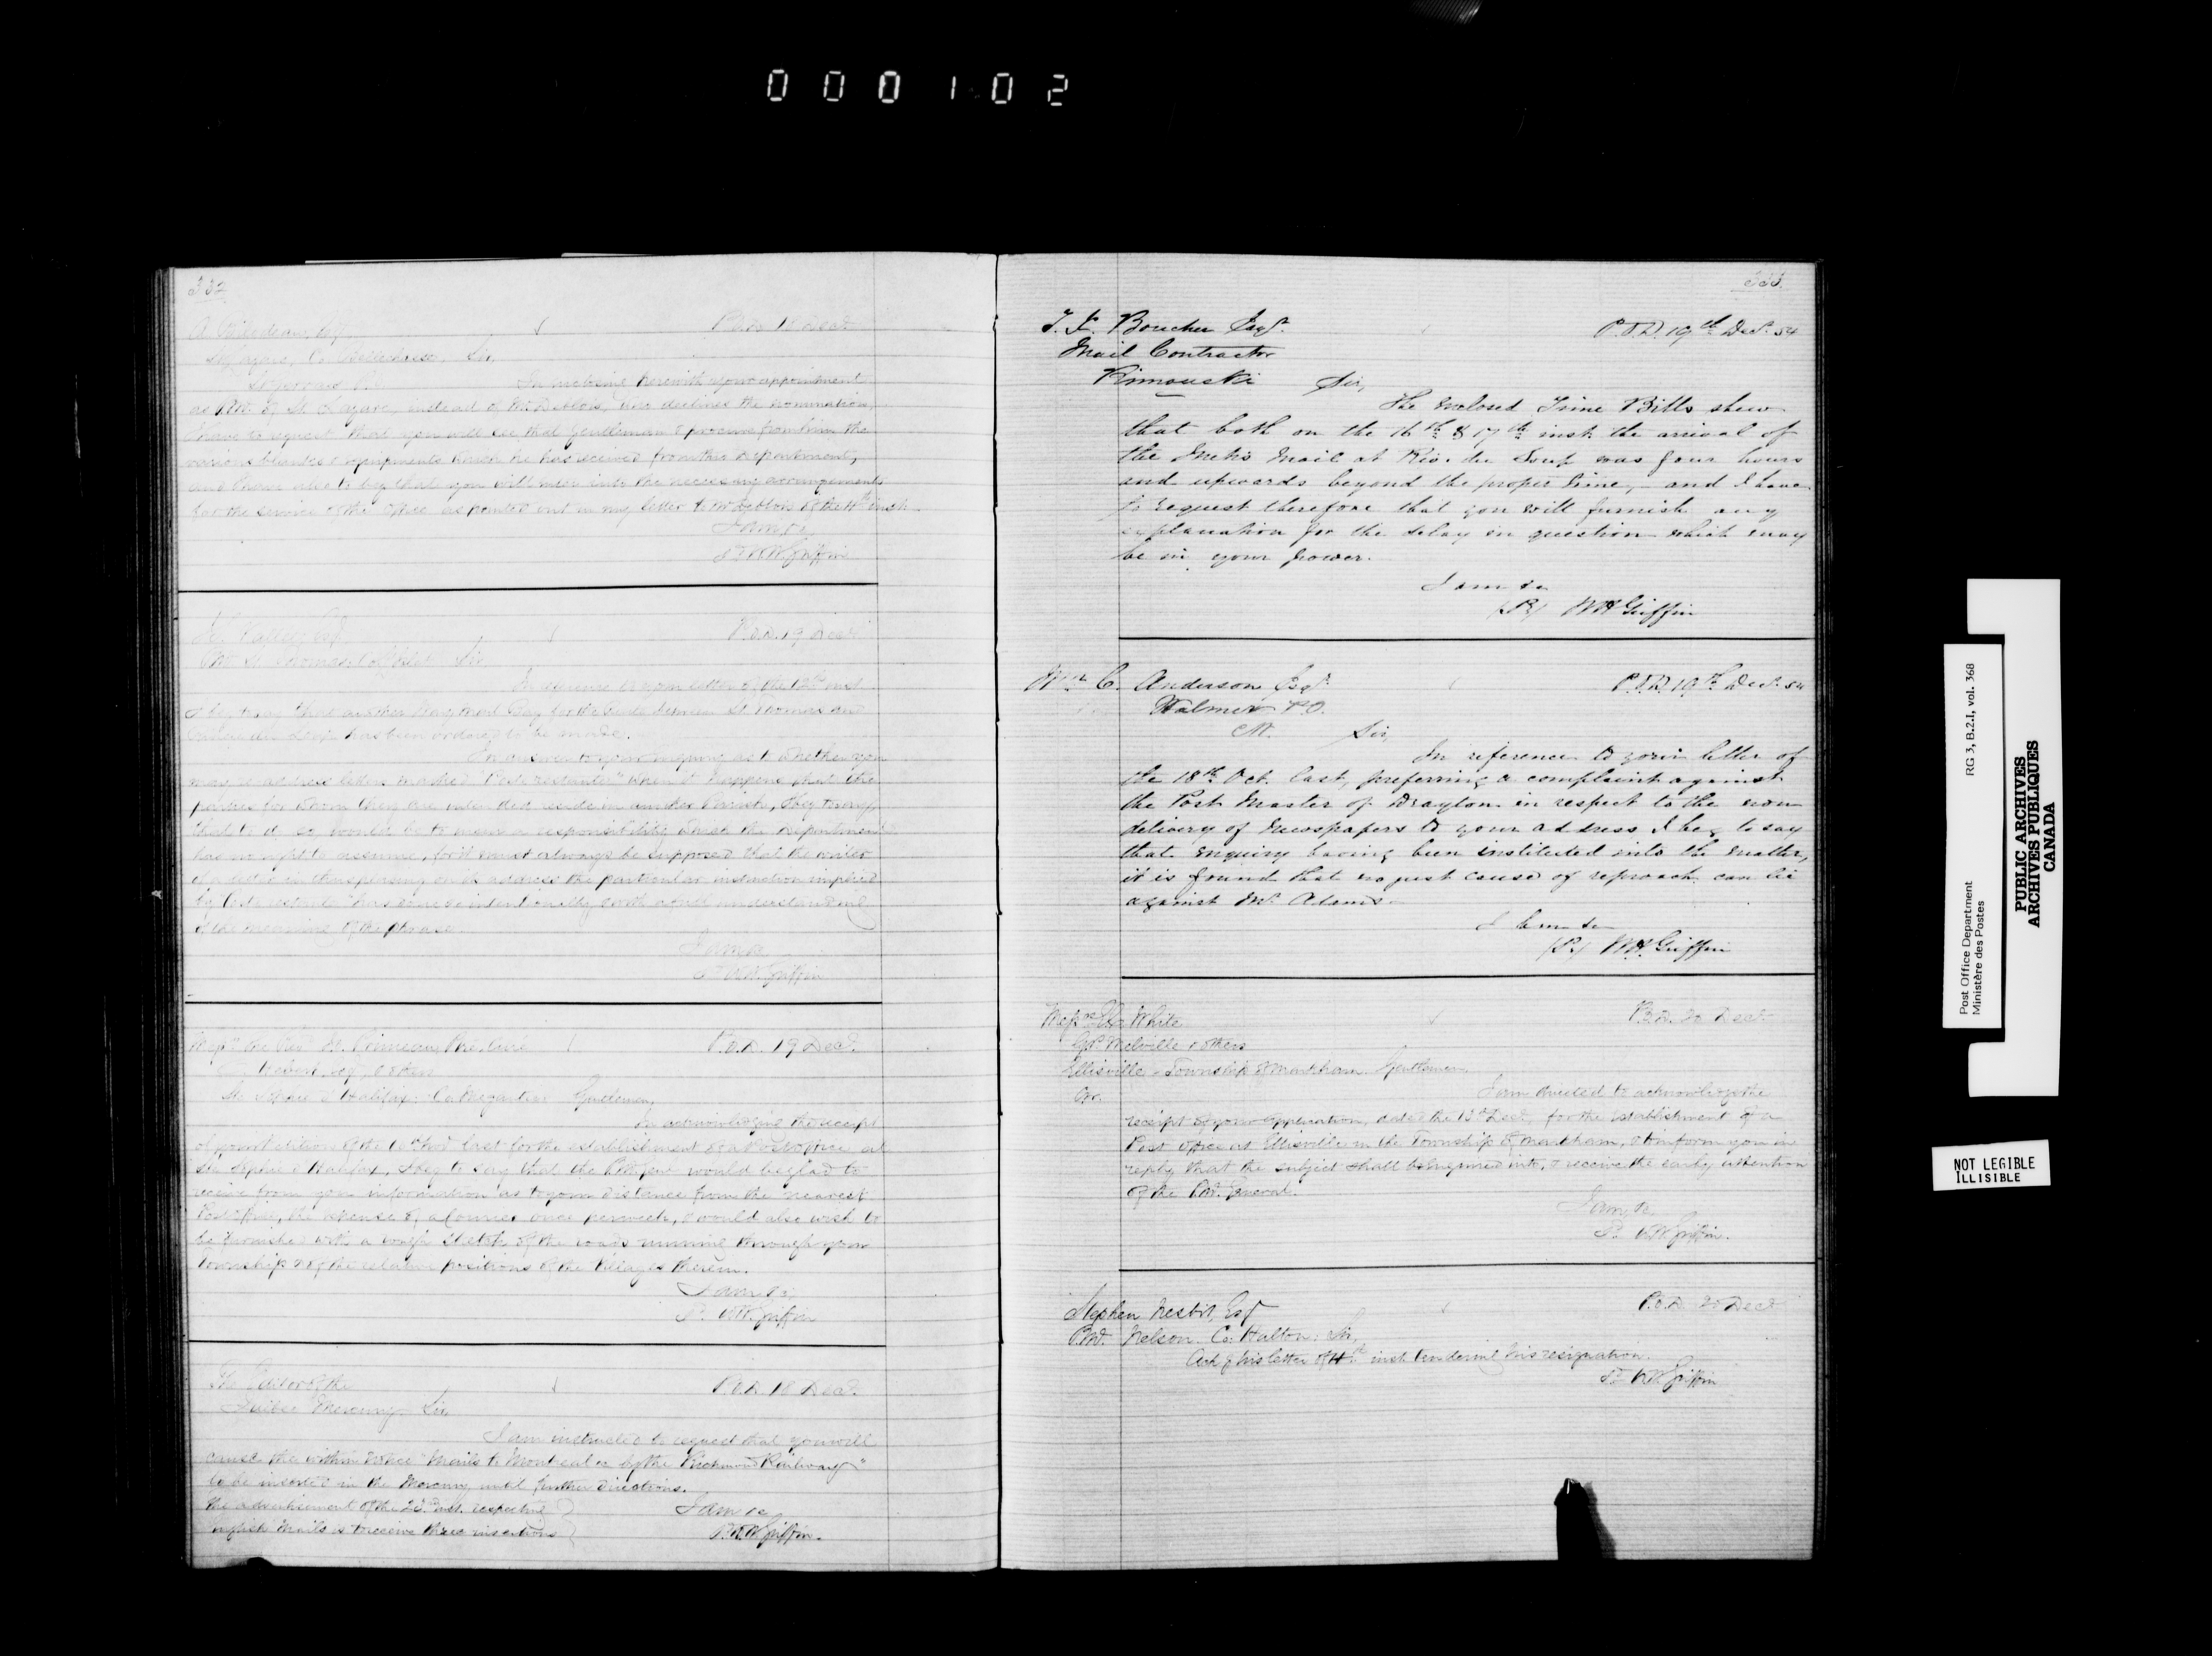 000102
332
P.O.D. 18 Decr
Sir,
In inclosing herewith your appointment
as P.M. of St Lazare, instead of Mr Deblois, who declines the nomination,
I have to request that you will see that gentleman & procure from him the
various blanks & equipments which he has received from this Department,
and I have also to beg that you will enter into the necessary arrangements
for the service of the Office as pointed out in my letter to Mr Deblois of the inst.
I am &c
Sd W.H. Griffin
P.O.D. 19 Decr
Sir
In reference to your letter of the 12th inst
I beg to say that another Way Mail Bag for the Route between St Thomas and
has been ordered to be made.
In answer to your enquiry as to whether you
may re-address letters marked "Poste restante" when it happens that the
parties for whom they are intended reside in another Parish, I beg to say
that to do so would be to incur a responsibility which the Department
has no right to assume, for it must always be supposed that the writer
of a letter in thus placing on its address the particular instruction implied
by "Poste restante" has done so intentionally with a full understanding
of the meaning of the phrase.
I am &c
Sd W.H. Griffin
P.O.D. 19 Decr
Hebert, Esqr & others
St Sophie d'Halifax, Co. Megantic Gentlemen,
In acknowledging the receipt
of your petition of the last for the establishment of a Post Office at
St Sophie d'Halifax, I beg to say that the P.M. Genl would be glad to
receive from you information as to your distance from the nearest
Post Office, the expense of a Courier once per week, & would also wish to
be furnished with a rough sketch of the roads running through your
Township & of the relative positions of the Villages therein.
I am &c
Sd W.H. Griffin
The Editor of the P.O.D. 18 Decr
Quebec Mercury Sir
I am instructed to request that you will
cause the within notice "Mails to Montreal &c by the Richmond Railway"
to be inserted in the Mercury until further directions.
The advertisement of the inst. respecting
English Mails is to receive three insertions
I am &c
Sd W.H. Griffin.
333.
Boucher Esqr. P.O.D. 19th Decr. 54
Mail Contractor
Rimouski Sir,
The enclosed Time Bills shew
that both on the 16th & 17th inst the arrival of
the Metis Mail at Riv. du Loup was four hours
and upwards beyond the proper time, and I have
to request therefore that you will furnish any
explanation for the delay in question which may
be in your power.
I am &c
(Sd) W H Griffin
Wm C. Anderson Esqr. P.O.D. 19th Decr. 54
Walmer P.O.
C.W. Sir,
In reference to your letter of
the 18th Oct. last, preferring a complaint against
the Post Master of Drayton in respect to the non
delivery of Newspapers to your address I beg to say
that enquiry having been instituted into the matter,
it is found that no just cause of reproach can lie
against Mr. Adams.
I am &c
(Sd) W.H. Griffin
White P.O.D. 20 Decr
Melville & others
Ellisville Township of Markham Gentlemen
I am directed to acknowledge the
receipt of your application, dated the 13th Decr for the establishment of a
Post Office at Ellisville in the Township of Markham, & to inform you in
reply that the subject shall be enquired into, & receive the early attention
of the P.M. General.
I am, &c
Sd W.H. Griffin.
Stephen Nesbit, Esqr P.O.D. 20 Decr
P.M. Nelson Co: Halton, Sir,
Ack'g his letter of inst. tendering his resignation.
Sd W.H. Griffin
Post Office Department
Ministère des Postes
RG 3, B.2.I, vol. 368
PUBLIC ARCHIVES
ARCHIVES PUBLIQUES
CANADA
NOT LEGIBLE
ILLISIBLE